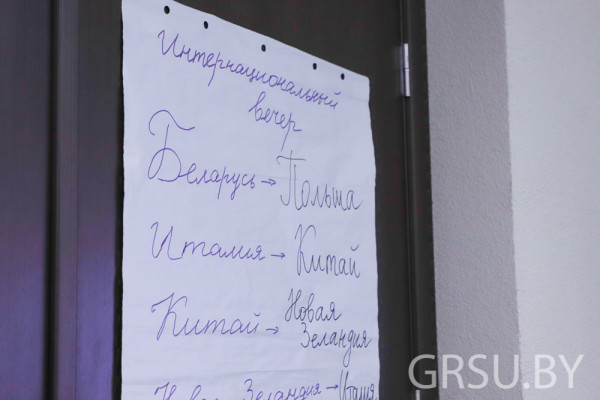 Интернациональный
вечер
Беларусь → Польша
Италия → Китай
Китай → Новая
Зеландия
Новая Зеландия → Италия
GRSU.BY